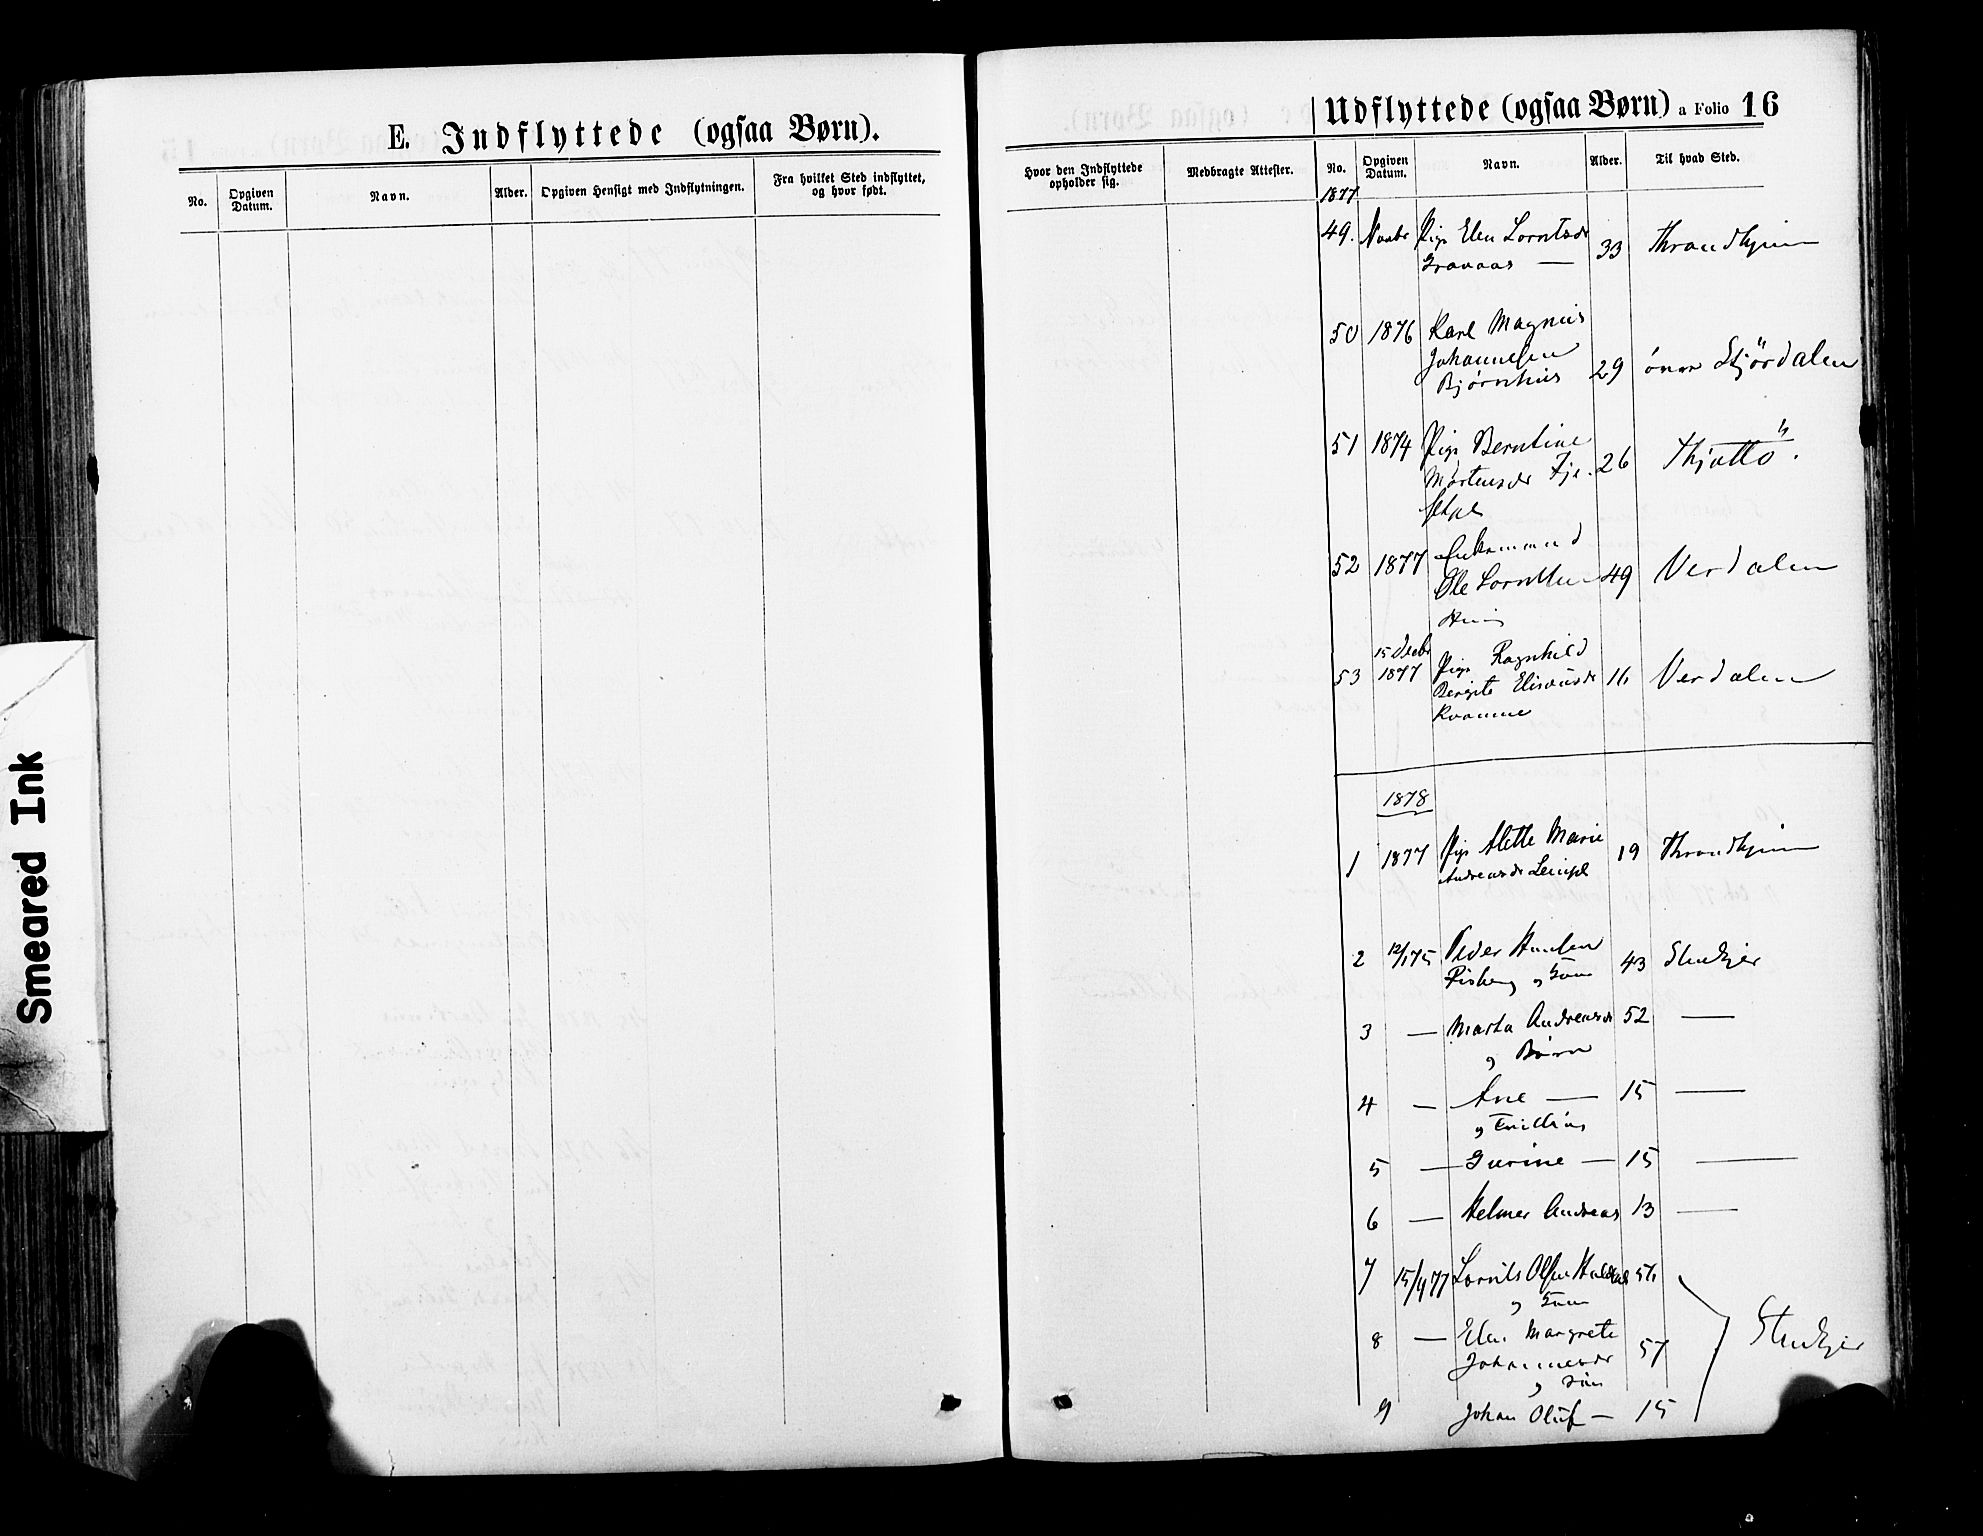 E. Indflyttede (ogsaa Børn).
No.
Opgiven Datum.
Navn.
Alder.
Opgiven Hensigt med Indflytningen.
Fra hvilket Sted indflyttet, og hvor født.
Udflyttede (ogsaa Børn) a Folio 16
Hvor den Indflyttede opholder sig.
Medbragte Attester.
No.
Opgiven Datum.
Navn.
Alder.
Til hvad Sted.
1877
49. Novbr Pige Elen Lorntsdr
Gravaas — 33 Throndhjem
50 1876 Karl Magnus
Johannesen
Bjørnhus 29 Stjördalen
51 1874 Pige Berntine
Mortensdr 26 Thjöttö.
52 1877 Enkemand
Ole Lorntsen 49 Verdalen
15 Decbr
53 1877 Pige Ragnhild
Bergite Eliseusdr 16 Verdalen
Kvamme
1878
1 1877 Pige Alette Marie 19 Throndhjem
Andreasdr
2 12/1 75 Peder Hansen 43 Stenkjer
3 — Marta Andreasdr 52 —
og Børn
4 — Ane — 15 —
og
5 — Gurine — 15 —
6 — Helmer Andreas 13 —
7 15/9 77 Lornts Olsen 56
8 — Elen Margrete
Johannesdr 57 Stenkjer
og Søn
9 Johan Oluf — 15
Smeared Ink